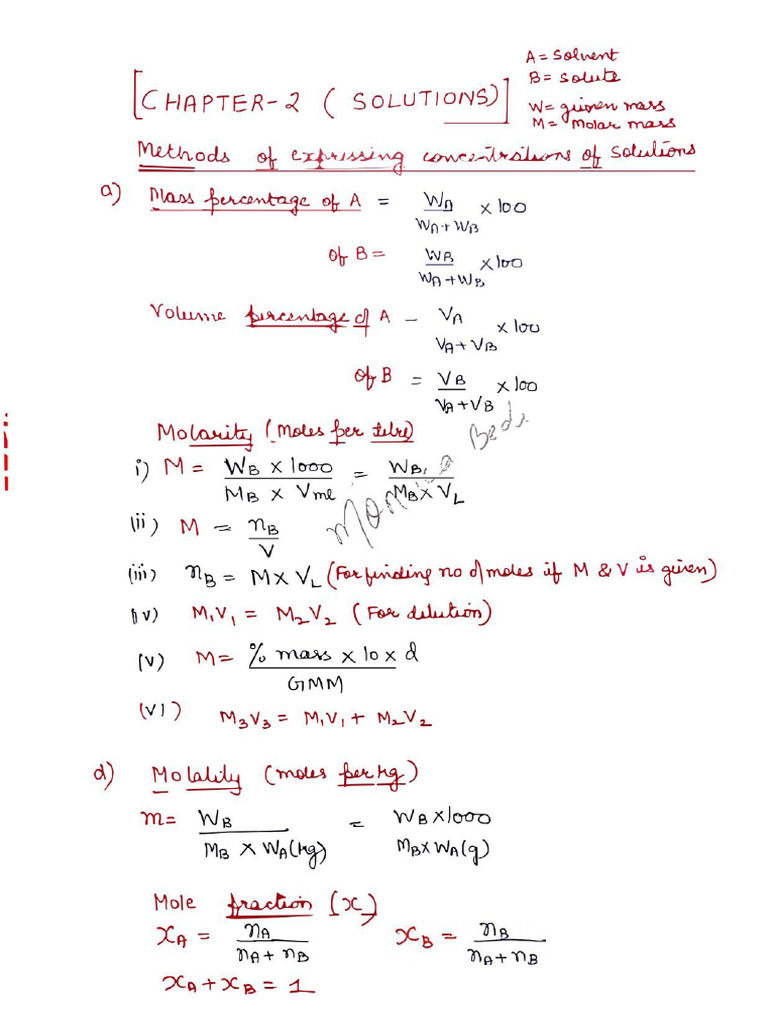 A = Solvent
B = Solute
[CHAPTER-2 ( SOLUTIONS)]
W = given mass
M = Molar mass
Methods of expressing concentrations of Solutions
a) Mass percentage of A = W_A / (W_A + W_B) × 100
of B = W_B / (W_A + W_B) × 100
Volume percentage of A - V_A / (V_A + V_B) × 100
of B = V_B / (V_A + V_B) × 100
Molarity (Moles per litre)
i) M = (W_B × 1000) / (M_B × V_ml) = W_B / (M_B × V_L)
(ii) M = n_B / V
(iii) n_B = M × V_L (For finding no of moles if M & V is given)
(iv) M₁V₁ = M₂V₂ (For dilution)
(v) M = (% mass × 10 × d) / GMM
(vi) M₃V₃ = M₁V₁ + M₂V₂
d) Molality (moles per kg)
m = W_B / (M_B × W_A(kg)) = (W_B × 1000) / (M_B × W_A(g))
Mole fraction (x)
x_A = n_A / (n_A + n_B) x_B = n_B / (n_A + n_B)
x_A + x_B = 1